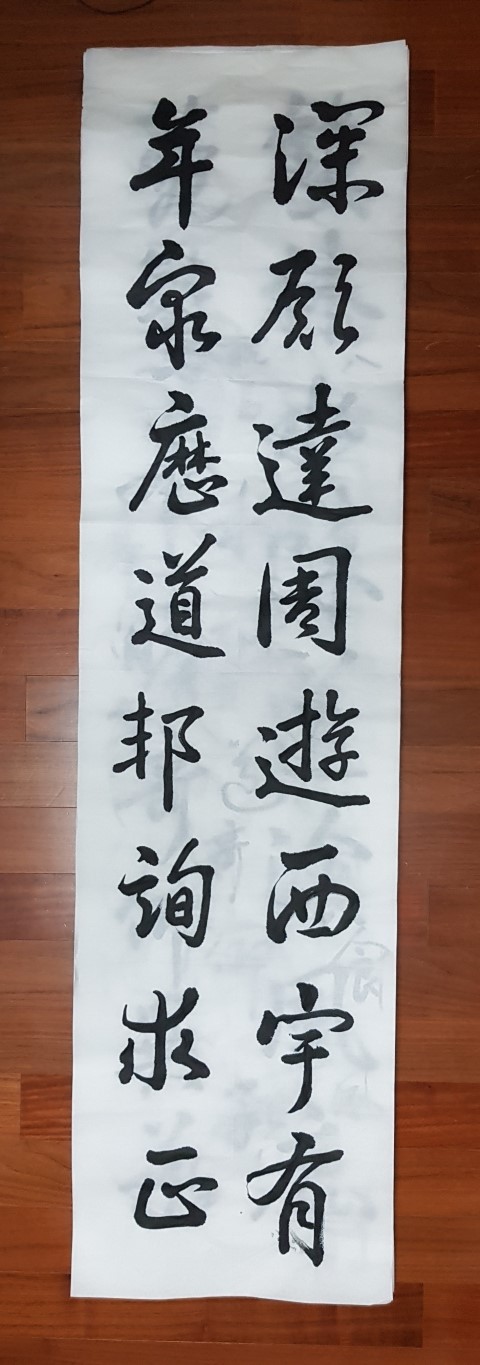 深願達周遊西宇有
年窮歷道邦詢求正